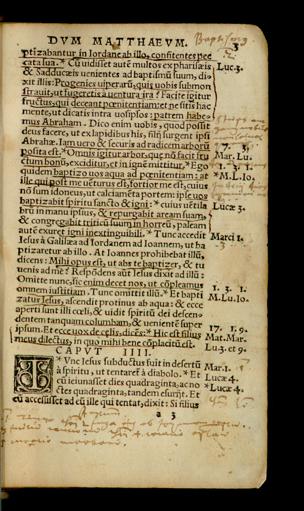 DVM MATTHAEVM.
3
ptizabantur in Iordane ab illo, confitentes pec
cata sua. * Cũ uidisset autẽ multos ex pharisæis
& Sadducæis uenientes ad baptismũ suum, di-
xit illis: Progenies uiperarũ, quis uobis submon
strauit, ut fugeretis à uentura ira? Facite igitur
fructus, qui deceant pœnitentiam: et ne sitis hac
mente, ut dicatis intra uosipsos: patrem habe-
mus Abraham. Dico enim uobis, quod possit
deus facere, ut ex lapidibus his, filij surgant ipsi
Abrahæ. Iam uero & securis ad radicem arborũ
posita est. * Omnis igitur arbor, quæ nõ facit fru
ctum bonũ, exciditur, et in ignẽ mittitur. * Ego
quidem baptizo uos aqua ad pœnitentiam: at
ille qui post me uẽturus est, fortior me est, cuius
nõ sum idoneus, ut calciamẽta portem: ipse uos
baptizabit spiritu sancto & igni: * cuius uẽtila
brũ in manu ipsius, & repurgabit aream suam,
& congregabit triticũ suum in horreũ, paleam
autẽ exuret igni inextinguibili. * Tunc accedit
Iesus à Galilæa ad Iordanem ad Ioannem, ut ba
ptizaretur ab illo. At Ioannes prohibebat illũ,
dicens: Mihi opus est, ut abs te baptizer, & tu
uenis ad me? Respõdens aũt Iesus dixit ad illũ:
Omitte nunc, sic enim decet nos, ut cõpleamus
omnem iustitiam. Tunc omittit illũ. * Et bapti
zatus Iesus, ascendit protinus ab aqua: & ecce
aperti sunt illi cœli, & uidit spiritũ dei descen-
dentem tanquam columbam, & uenientẽ super
ipsum. Et ecce uox de cœlis, dicẽs: * Hic est filius
meus dilectus, in quo mihi bene cõplacitũ est.
CAPVT IIII.
TVnc Iesus subductus fuit in desertũ
à spiritu, ut tentaret̃ à diabolo. * Et
cũ ieiunasset dies quadraginta, ac no
ctes quadraginta, tandem esurijt. Et
cũ accessisset ad eũ ille qui tentat, dixit: Si filius
a 3
Luc.3.
17. 3.
Mar. Lu.
1. 3.
M.L.Io.
Lucæ 3.
Marci 1.
1. 3. 1.
M.Lu.Io.
17. 1. 9.
Mat.Mar.
Lu.3. et 9.
Mar.1.
Lucæ 4.
*Lucæ 4.